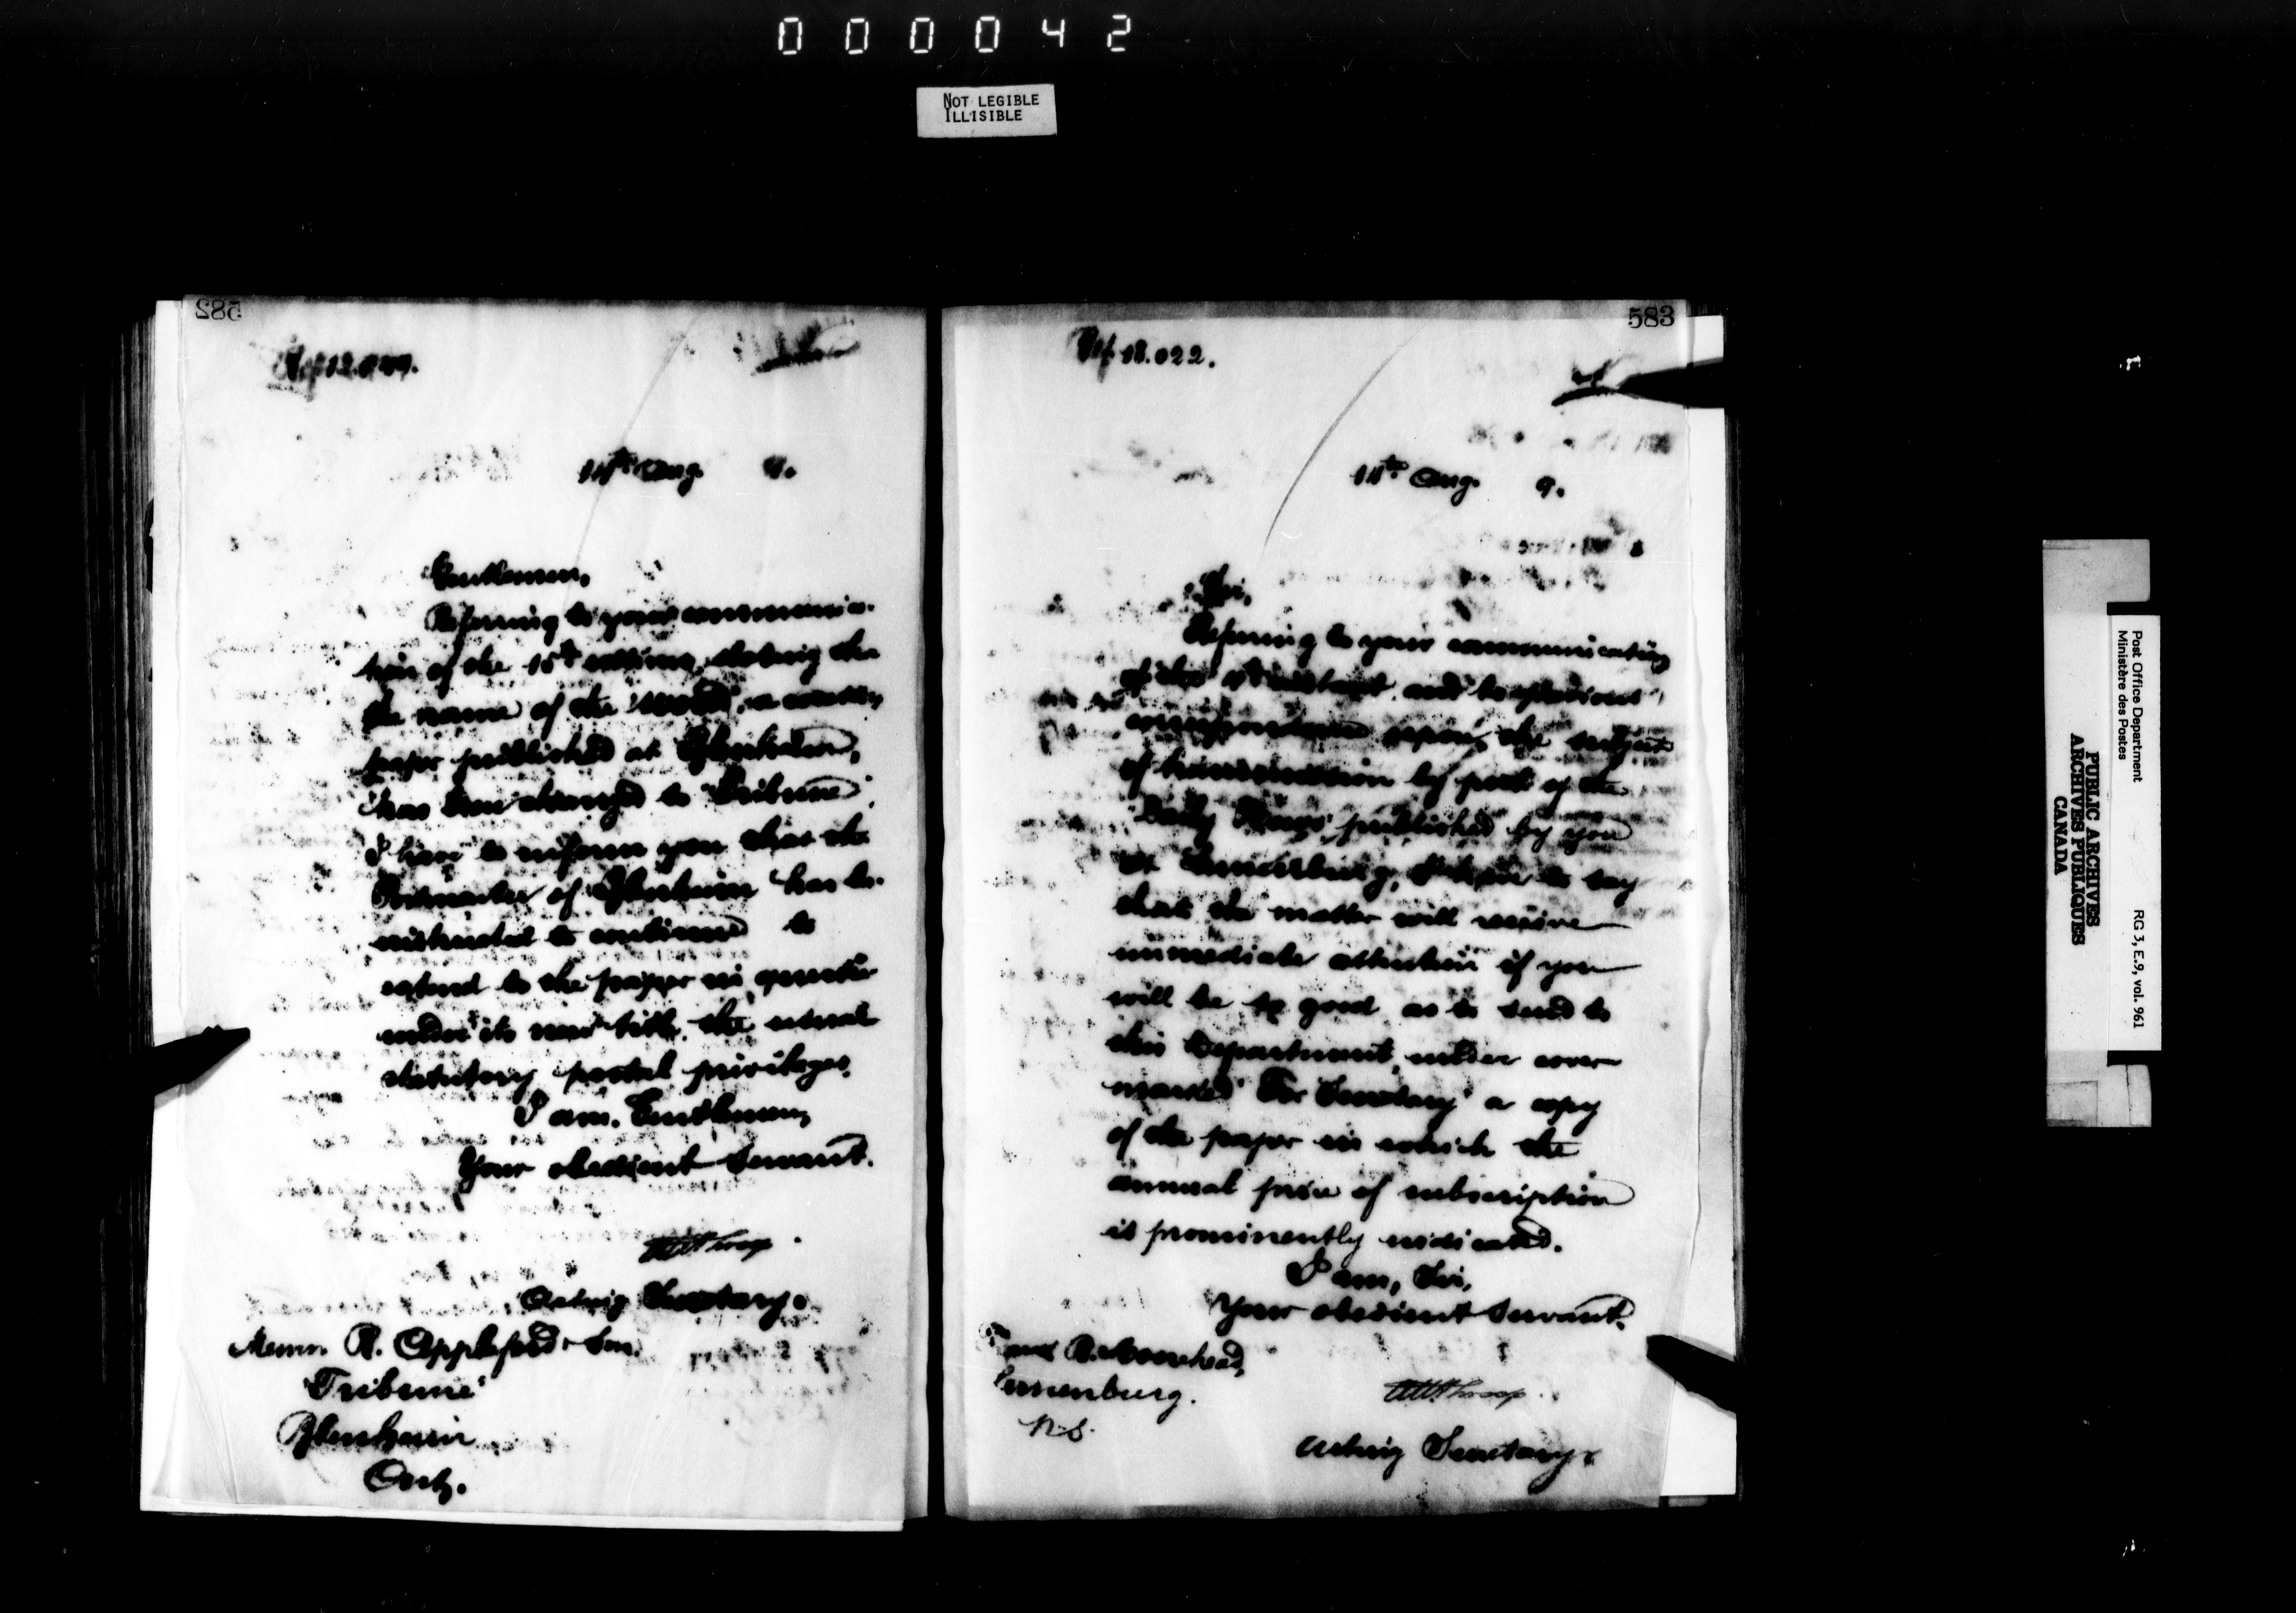 000042
NOT LEGIBLE
ILLISIBLE
582
14th Aug. 9.
Gentlemen,
Referring to your communica-
tion of the 15th ultimo, stating that
the name of the "World", a
paper published at Blenheim,
has been changed to "Tribune",
I have to inform you that the
Postmaster of Blenheim has been
instructed to continue to
extend to the paper in question
under its new title, the usual
statutory postal privileges.
I am, Gentlemen,
Your obedient Servant.
Acting Secretary.
Messrs. R. Appleford & Son,
"Tribune"
Blenheim
Ont.
583
Ref. 18.022.
14th Aug. 9.
Sir,
Referring to your communication
of the instant and to previous
correspondence upon the subject
of transmission by post of the
"Daily News", published by you
at Lunenburg, I have to say
that the matter will receive
immediate attention if you
will be so good as to send to
this Department, under cover
marked "For Secretary" a copy
of the paper in which the
annual price of subscription
is prominently indicated.
I am, Sir,
Your obedient Servant.
Moorehead,
Lunenburg.
N.S.
Acting Secretary.
Post Office Department
Ministère des Postes
RG 3, E.9, vol. 961
PUBLIC ARCHIVES
ARCHIVES PUBLIQUES
CANADA